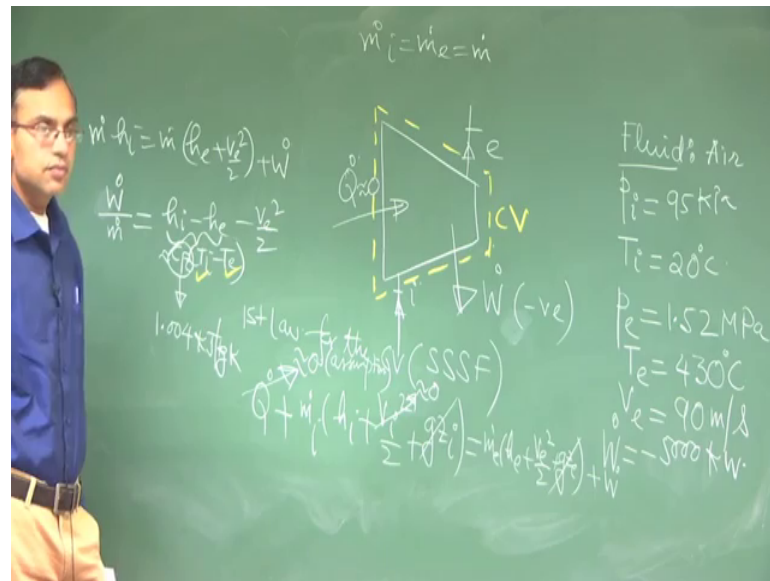 ṁi = ṁe = ṁ
ṁ hi = ṁ (he + Ve²/2) + Ẇ
Ẇ/ṁ = hi - he - Ve²/2
(Ti - Te)
1.004 kJ/kgK
Q̇ ≈ 0
e
CV
i
Ẇ (-ve)
1st Law for the CV (SSSF)
≈0 (assumption)
≈0
Q̇ + ṁi (hi + Vi²/2 + gzi) = ṁe (he + Ve²/2 + gze) + Ẇ
Fluid: Air
Pi = 95 kPa
Ti = 20°C
Pe = 1.52 MPa
Te = 430°C
Ve = 90 m/s
Ẇ = -5000 kW.